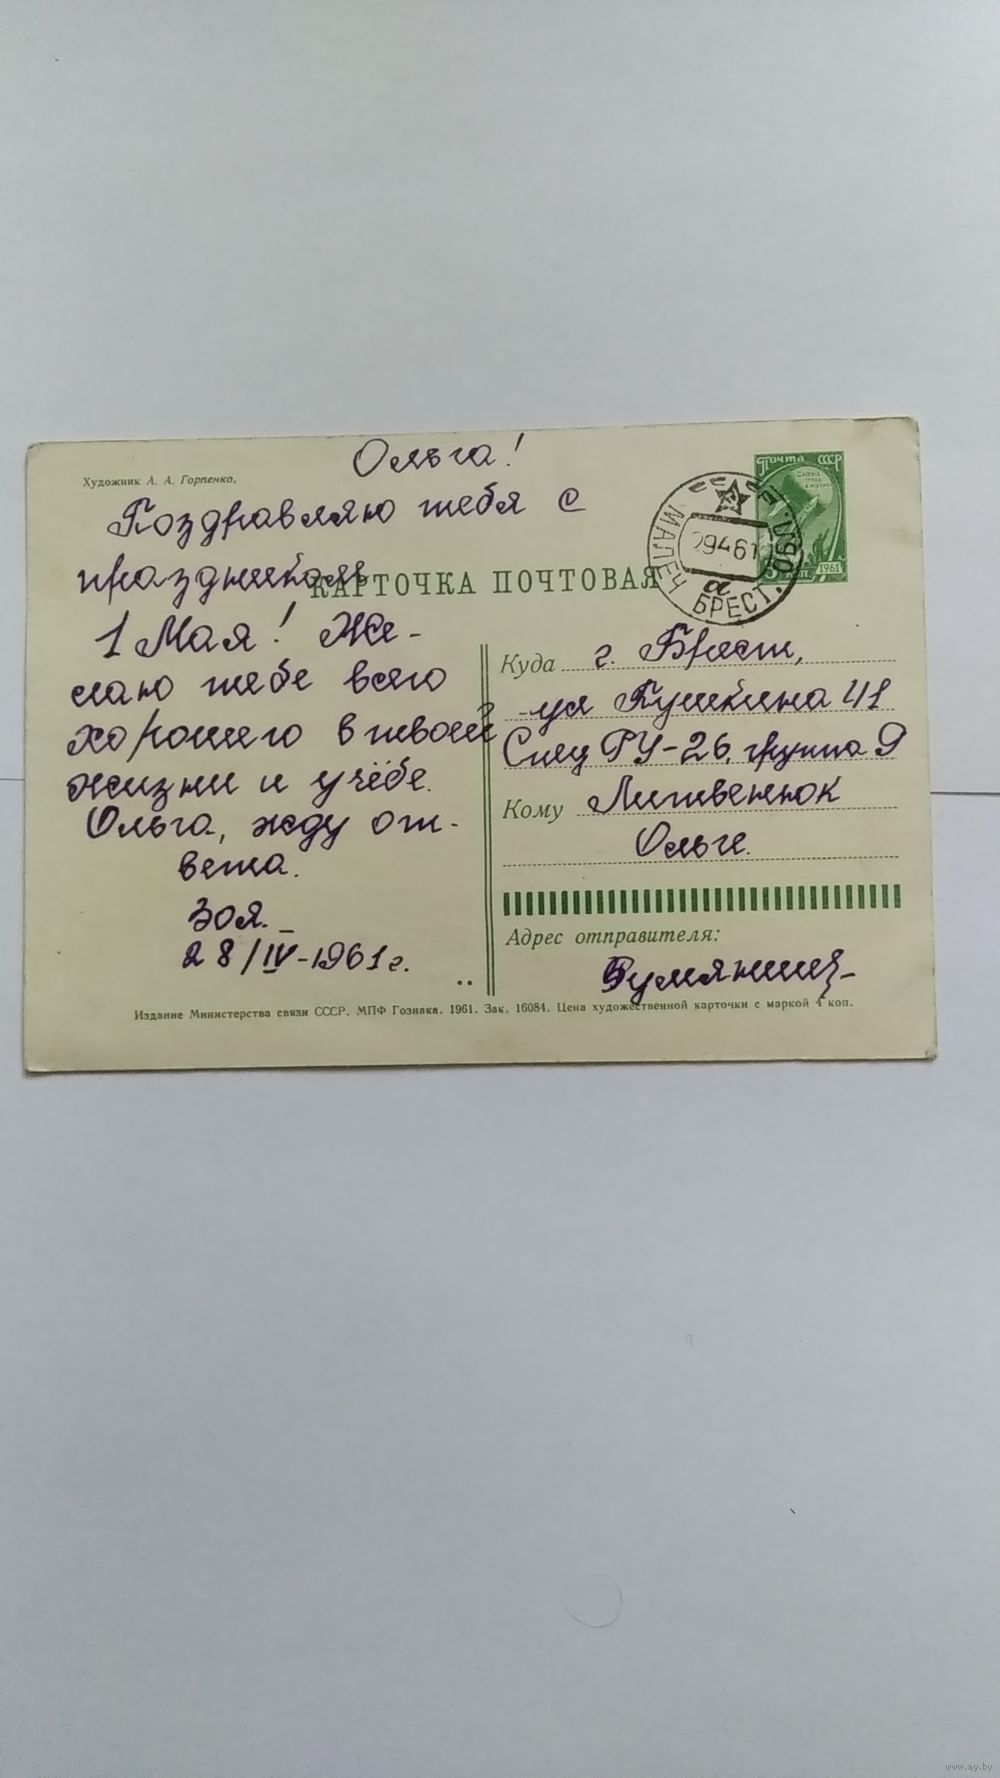 Ольга!
Художник А. А. Горпенко.
Поздравляю тебя с
праздником
КАРТОЧКА ПОЧТОВАЯ
1 Мая! Же-
лаю тебе всего
хорошего в твоей
жизни и учёбе.
Ольга, жду от-
вета.
Зоя.
28/IV-1961г.
Почта СССР
1961
29461
а
МАЛЕЧ БРЕСТ. ОБЛ.
Куда г. Брест,
ул Пушкина 41
Спец РУ-26, группа 9
Кому Литвенюк
Ольге.
Адрес отправителя:
Издание Министерства связи СССР. МПФ Гознака. 1961. Зак. 16084. Цена художественной карточки с маркой 4 коп.
www.ay.by